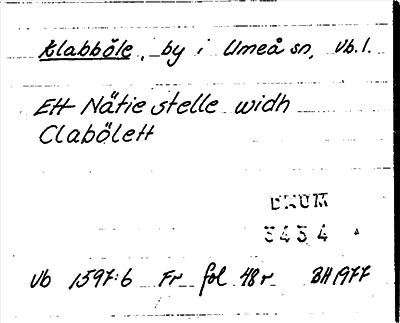 Klabböle, by i Umeå sn, Vb.l.
Ett Nätie stelle widh
Clabölett
DAUM
3434
Vb 1597:6 Fr fol 48r BH1977